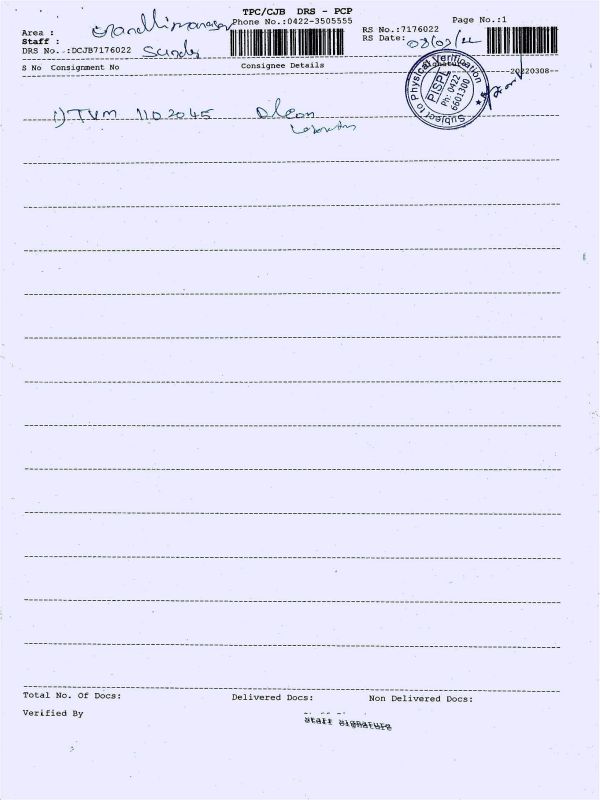 TPC/CJB DRS - PCP
Area : Gandhimanagar
Phone No.:0422-3505555
RS No.:7176022
Page No.:1
Staff :
RS Date: 08/03/22
DRS No..:DCJB7176022
S No Consignment No
Consignee Details
Signature
--20220308--
Subject to Physical Verification
PISPL
Ph: 0422
6601300
1) TVM 1102045
Total No. Of Docs:
Delivered Docs:
Non Delivered Docs:
Verified By
Staff Signature